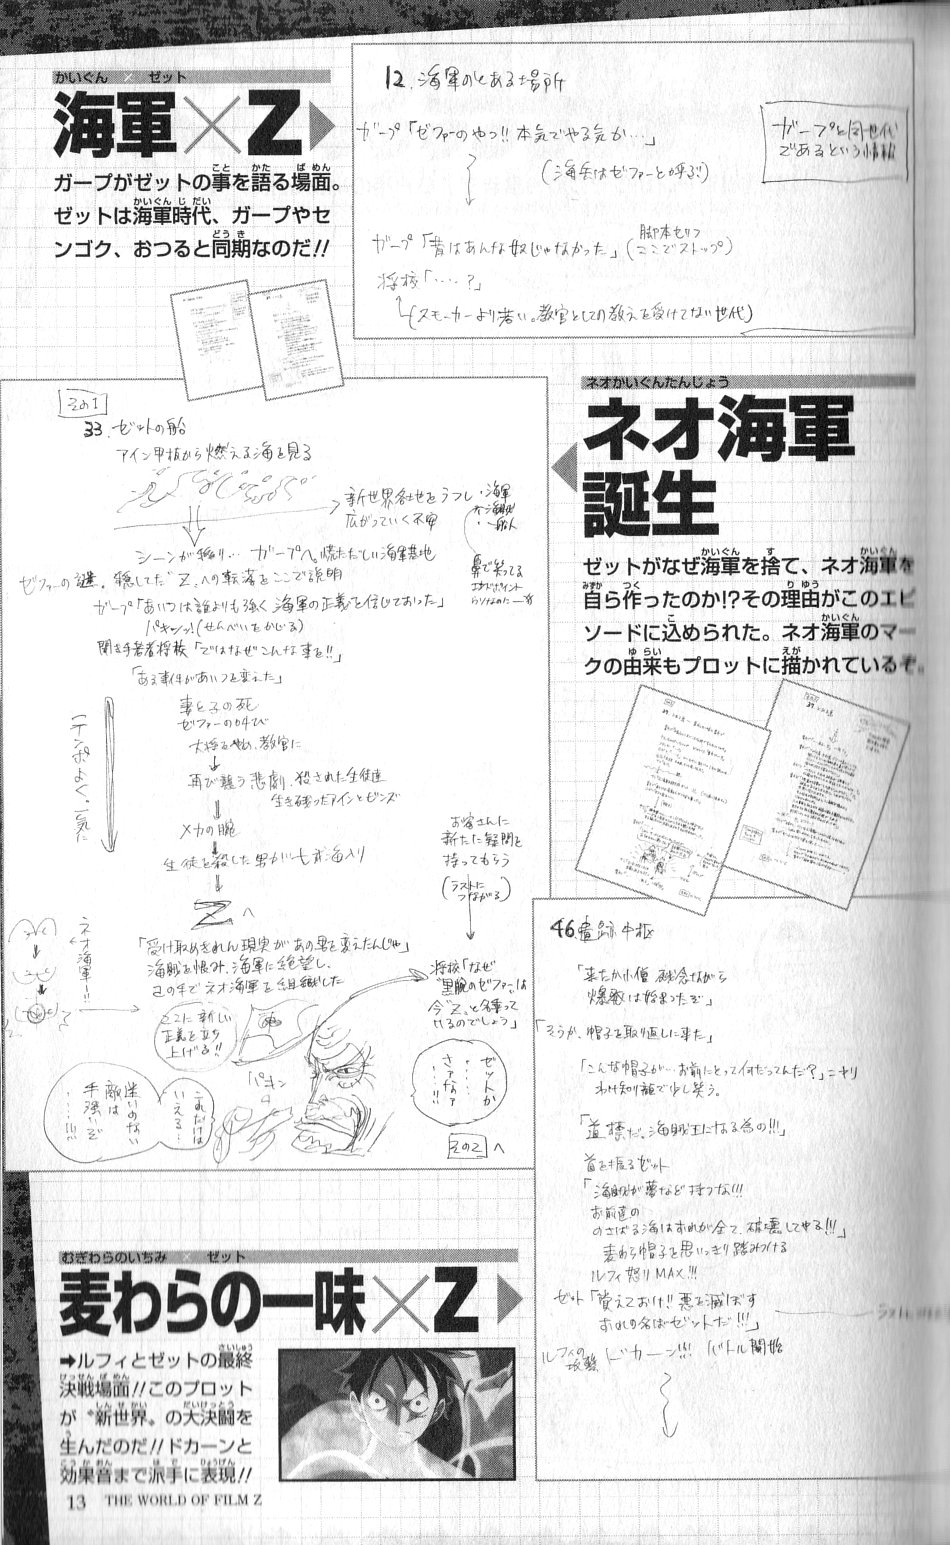 かいぐん × ゼット
海軍×Z
ガープがゼットの事を語る場面。
ゼットは海軍時代、ガープやセ
ンゴク、おつると同期なのだ!!
12. 海軍のとある場所
ガープ「ゼファーのやつ!! 本気でやる気か…」
(海兵はゼファーと呼ぶ)
ガープと同世代
であるという情報
ガープ「昔はあんな奴じゃなかった」(脚本セリフ
ここでストップ)
将校「‥‥?」
(スモーカーより若い。教官としての教えを受けてない世代)
ネオかいぐんたんじょう
ネオ海軍
誕生
ゼットがなぜ海軍を捨て、ネオ海軍を
自ら作ったのか!?その理由がこのエピ
ソードに込められた。ネオ海軍のマー
クの由来もプロットに描かれているぞ。
その1
33. ゼットの船
アイン甲板から燃える海を見る
新世界各地をうつし
広がっていく不安
・海軍
・海賊
シーンが移り… ガープへ。慌ただしい海軍基地
ゼファーの謎。隠してた"Z"への転落をここで説明
ガープ「あいつは誰よりも強く海軍の正義を信じておった」
バキンッ!(せんべいをかじる)
聞き手若者将校「ではなぜこんな事を!!」
「ある事件があいつを変えた」
テンポよく。一気に
妻と子の死
ゼファーの叫び
大将をやめ、教官に
再び襲う悲劇、殺された生徒達
生き残ったアインとビンズ
メカの腕
生徒を殺した男が七武海入り
Zへ
お客さんに
新たな疑問を
持ってもらう
(ラストに
つながる)
「受け止めきれん現実があの男を変えたんじゃ」
海賊を恨み、海軍に絶望し、
この手でネオ海軍を組織した
ネオ海軍ー!!
ここに新しい
正義を立ち
上げる!!
将校「なぜ
"黒腕のゼファー"は
今"Z"と名乗って
いるのでしょう」
ゼットか
‥‥
さァなァ
‥‥!!
バキン
これだけは
いえる…
迷いのない
敵は
手強いぞ
‥‥!!!
その2へ
46 遺跡中枢
「来たか小僧 残念ながら
爆破は始まったぞ」
「そうか、帽子を取り返しに来た」
「こんな帽子が… お前にとって何だってんだ?」ニヤリ
わけ知り顔で少し笑う。
「道標だ。海賊王になる為の!!!」
首を振るゼット
「海賊が夢など持つな!!!
お前達の
のさばる海はおれが全て、破壊してやる!!!」
麦わら帽子を思いっきり踏みつける
ルフィ怒りMAX!!!
ゼット「覚えておけ!! 悪を滅ぼす
おれの名はゼットだ!!!」
ルフィの
攻撃
ドカーン!!! バトル開始
むぎわらのいちみ × ゼット
麦わらの一味×Z
➡ルフィとゼットの最終
決戦場面!!このプロット
が“新世界”の大決闘を
生んだのだ!!ドカーンと
効果音まで派手に表現!!
13 THE WORLD OF FILM Z